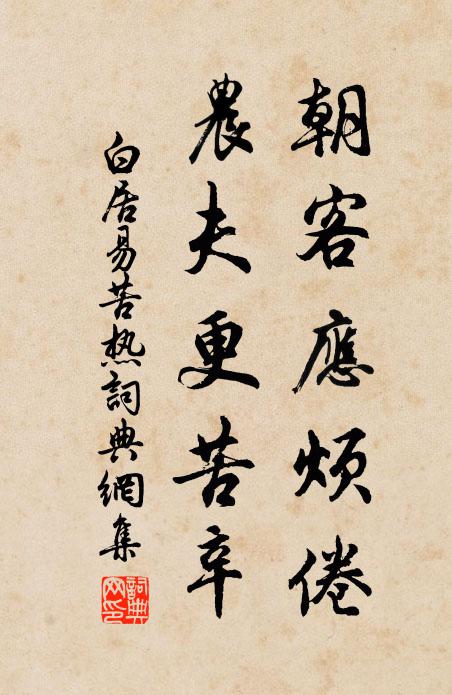 朝客應煩倦
農夫更苦辛
白居易苦热詞典網集
詞典網印